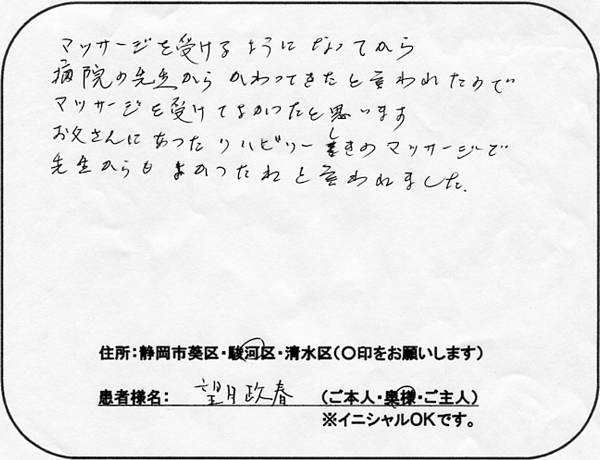 マッサージを受けるようになってから
病院の先生からかわってきたと言われたので
マッサージを受けてよかったと思います
お父さんにあったリハビリーきのマッサージで
先生からもよかったねと言われました.
住所:静岡市葵区・駿河区・清水区(〇印をお願いします)
患者様名: 望月政春 (ご本人・奥様・ご主人)
※イニシャルOKです。